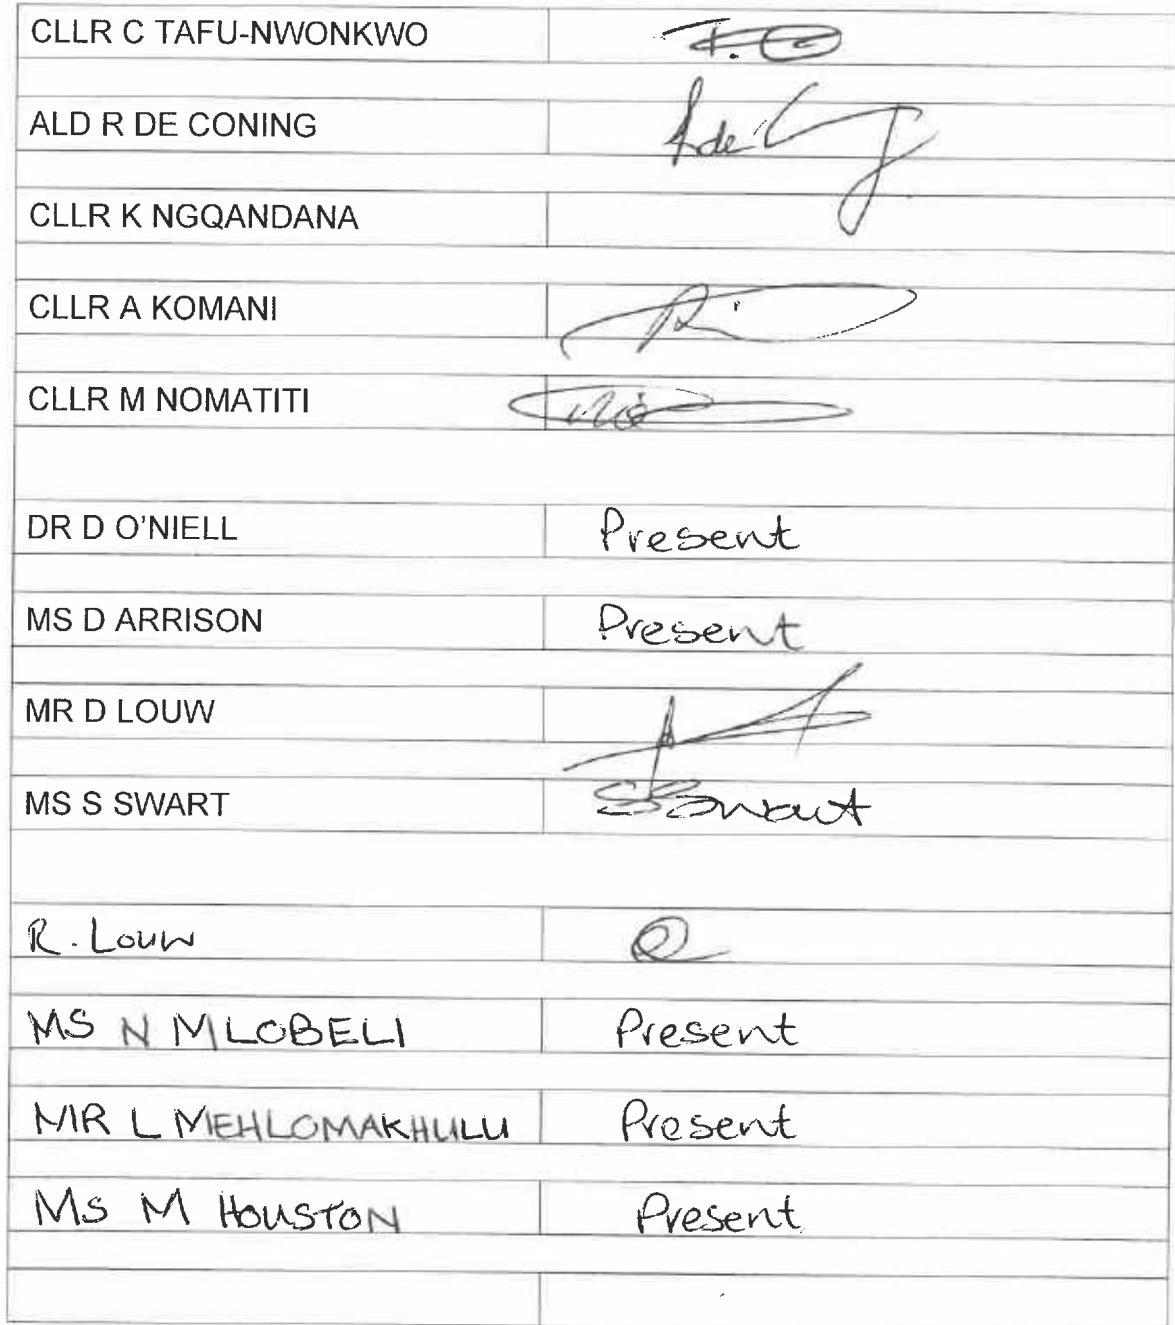 CLLR C TAFU-NWONKWO
ALD R DE CONING
CLLR K NGQANDANA
CLLR A KOMANI
CLLR M NOMATITI
DR D O'NIELL Present
MS D ARRISON Present
MR D LOUW
MS S SWART SSwart
R. Louw
MS N MLOBELI Present
MR L MEHLOMAKHULU Present
MS M HOUSTON Present